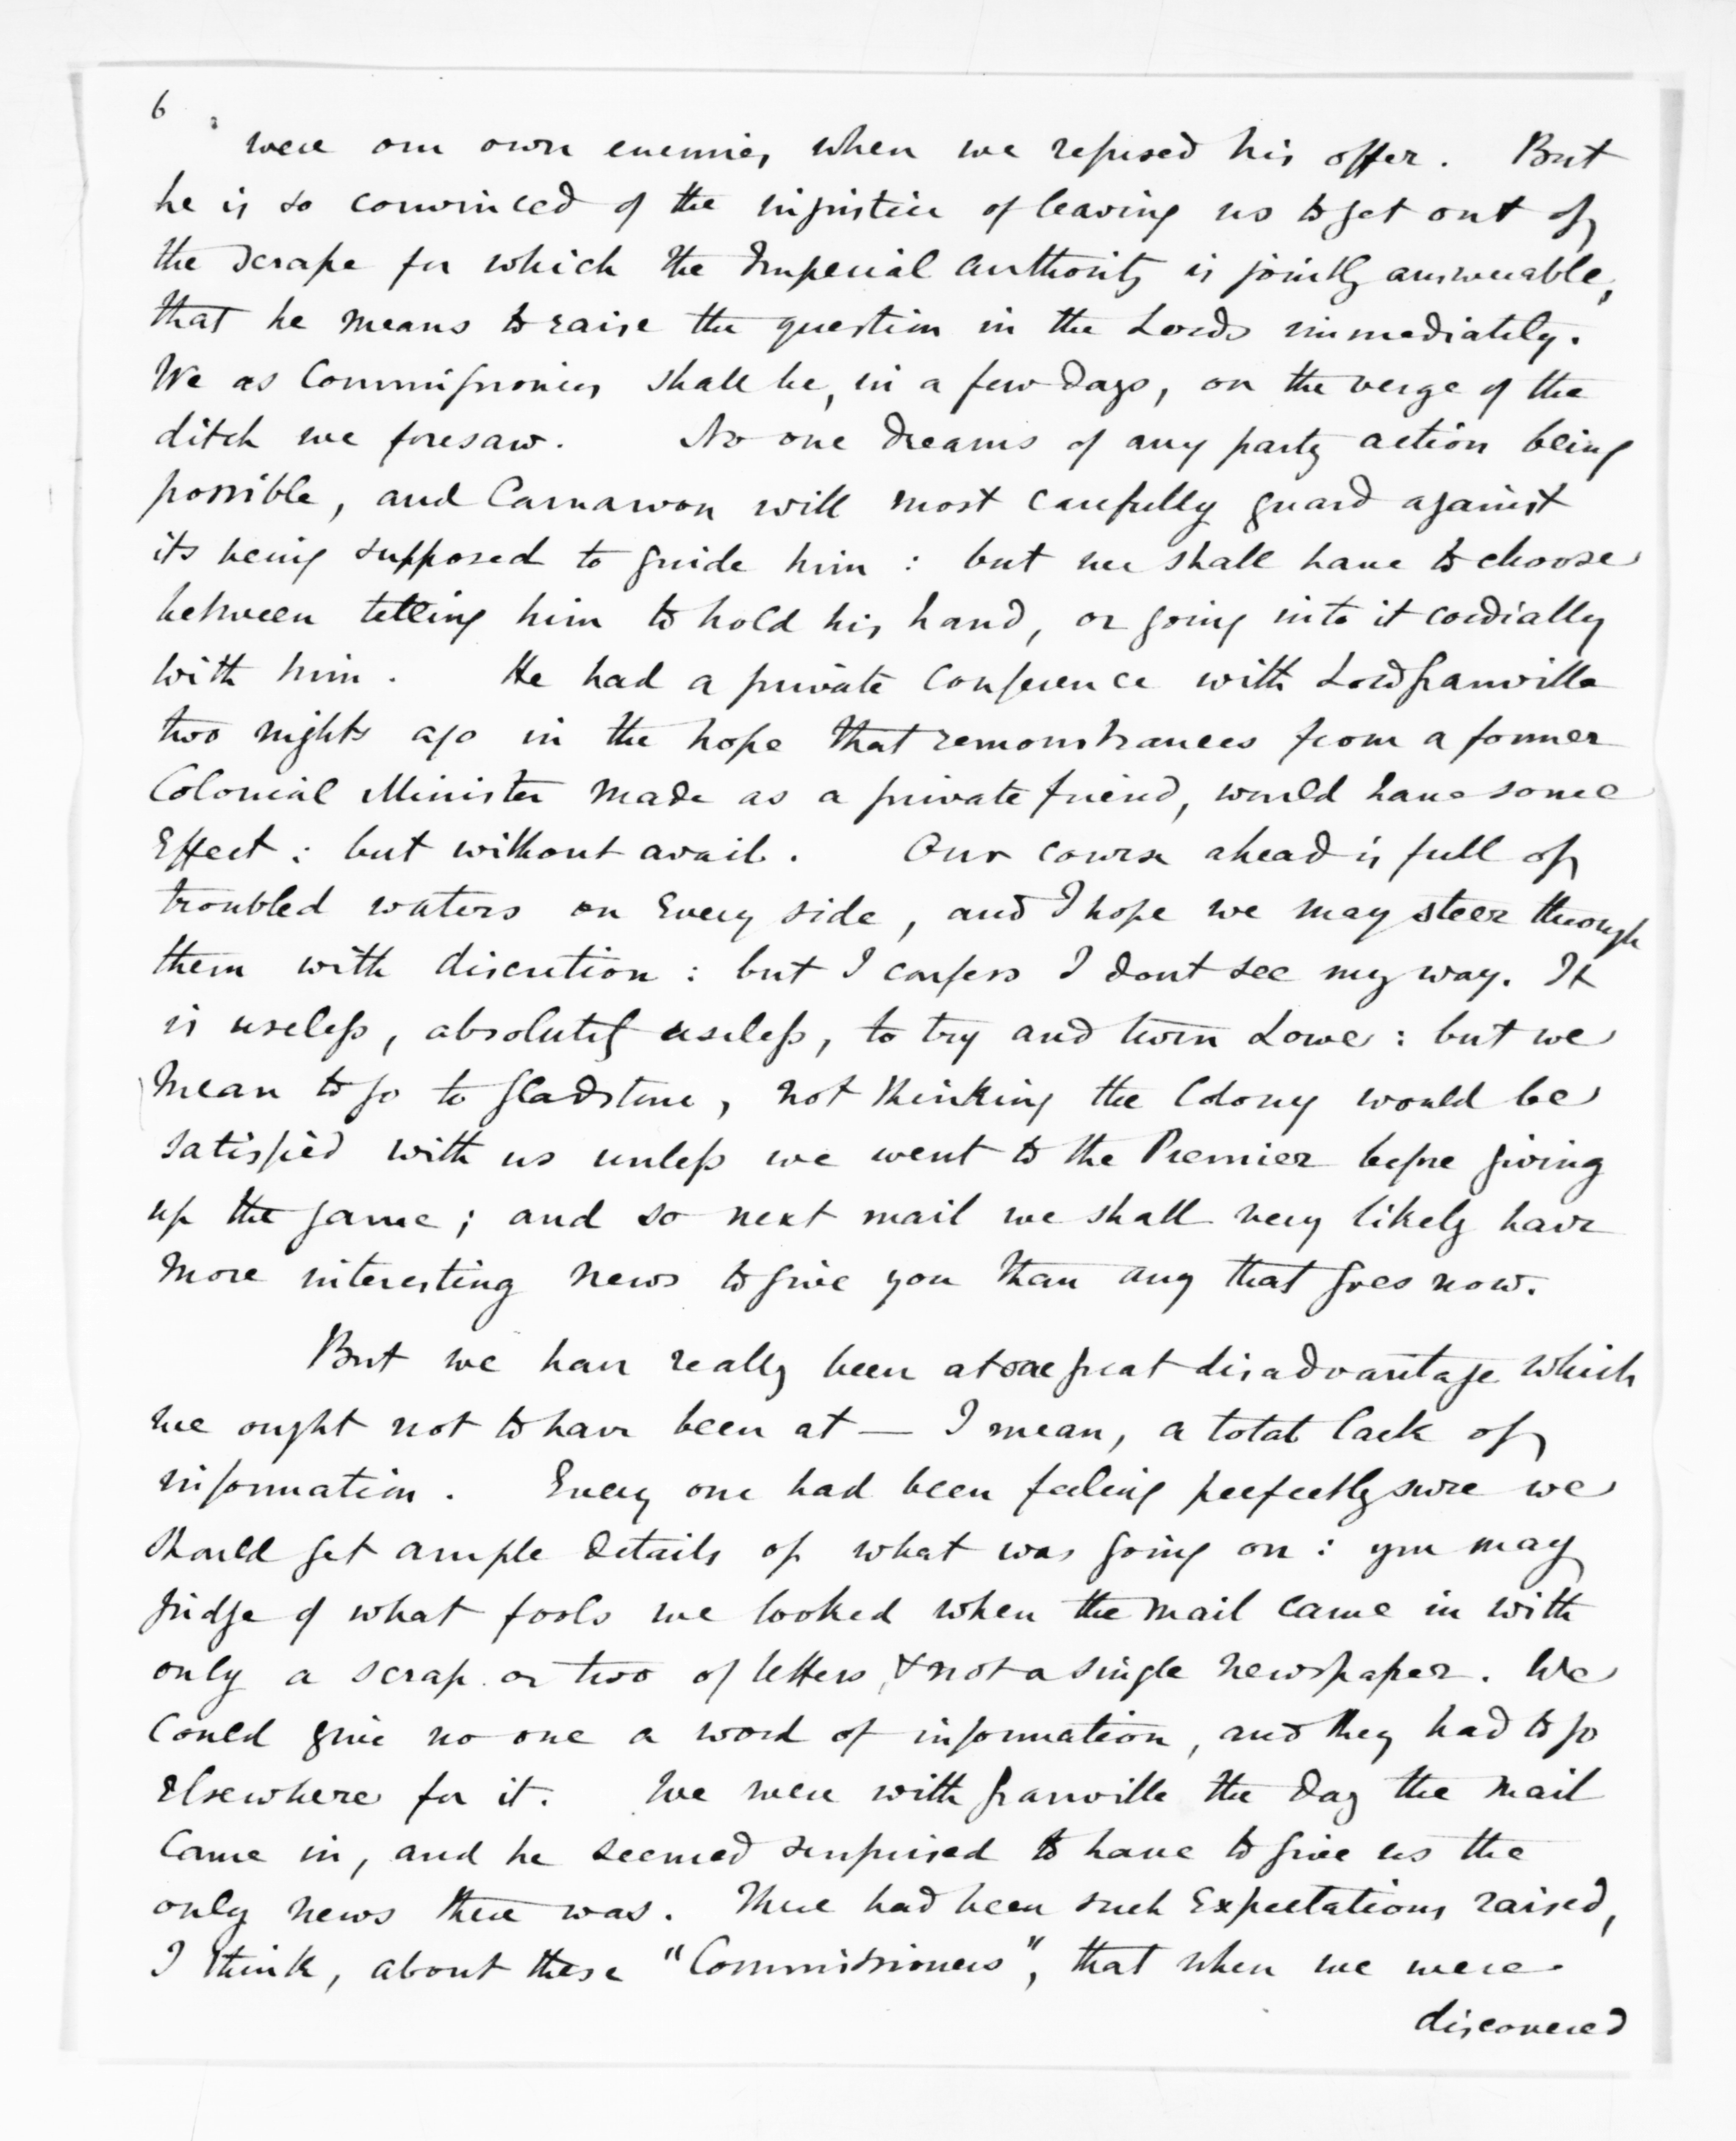 6
were our own enemies when we refused his offer. But
he is so convinced of the injustice of leaving us to get out of
the scrape for which the Imperial authority is jointly answerable,
that he means to raise the question in the Lords immediately.
We as Commissioners shall be, in a few days, on the verge of the
ditch we foresaw. No one dreams of any party action being
possible, and Carnarvon will most carefully guard against
its being supposed to guide him : but we shall have to choose
between telling him to hold his hand, or going into it cordially
with him. He had a private conference with Lord Granville
two nights ago in the hope that remonstrances from a former
Colonial Minister made as a private friend, would have some
effect : but without avail. Our course ahead is full of
troubled waters on every side, and I hope we may steer through
them with discretion : but I confess I dont see my way. It
is useless, absolutely useless, to try and turn Lowe : but we
mean to go to Gladstone, not thinking the Colony would be
satisfied with us unless we went to the Premier before giving
up the game ; and so next mail we shall very likely have
more interesting news to give you than any that goes now.
But we have really been at one great disadvantage which
we ought not to have been at — I mean, a total lack of
information. Every one had been feeling perfectly sure we
should get ample details of what was going on : you may
judge of what fools we looked when the mail came in with
only a scrap or two of letters, & not a single newspaper. We
could give no one a word of information, and they had to go
elsewhere for it. We were with Granville the day the mail
came in, and he seemed surprised to have to give us the
only news there was. There had been such expectations raised,
I think, about these "Commissioners", that when we were
discovered